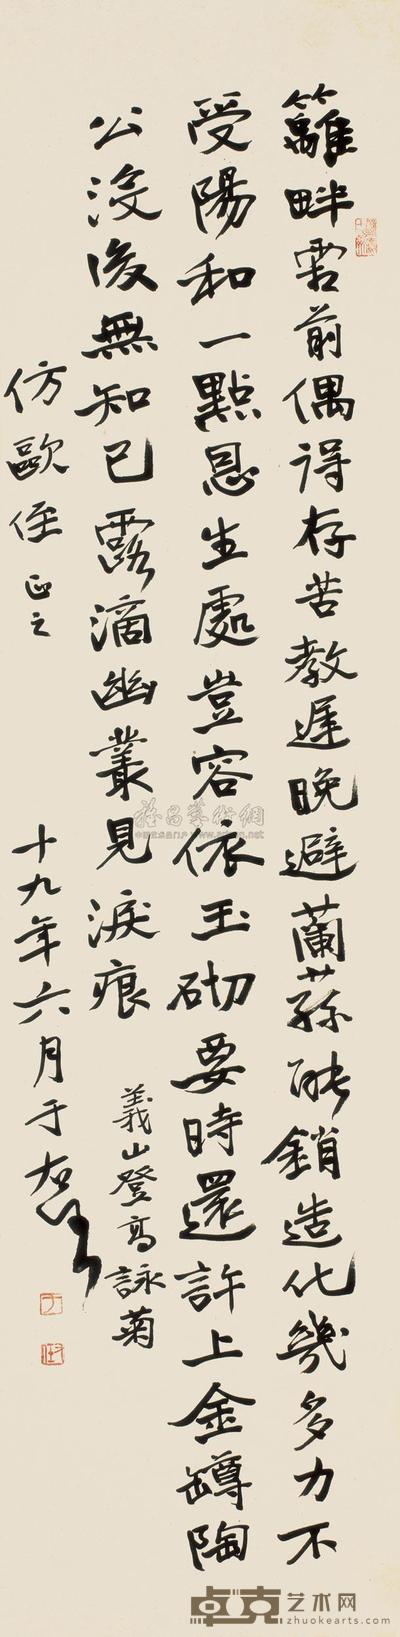 籬畔霜前偶得存苦教遲晚避蘭蓀能銷造化幾多力不
受陽和一點恩生處豈容依玉砌要時還許上金罇陶
公沒後無知己露滴幽叢見淚痕
義山登高詠菊
仿歐侄正之
十九年六月于右任
卓克艺术网
zhuokearts.com